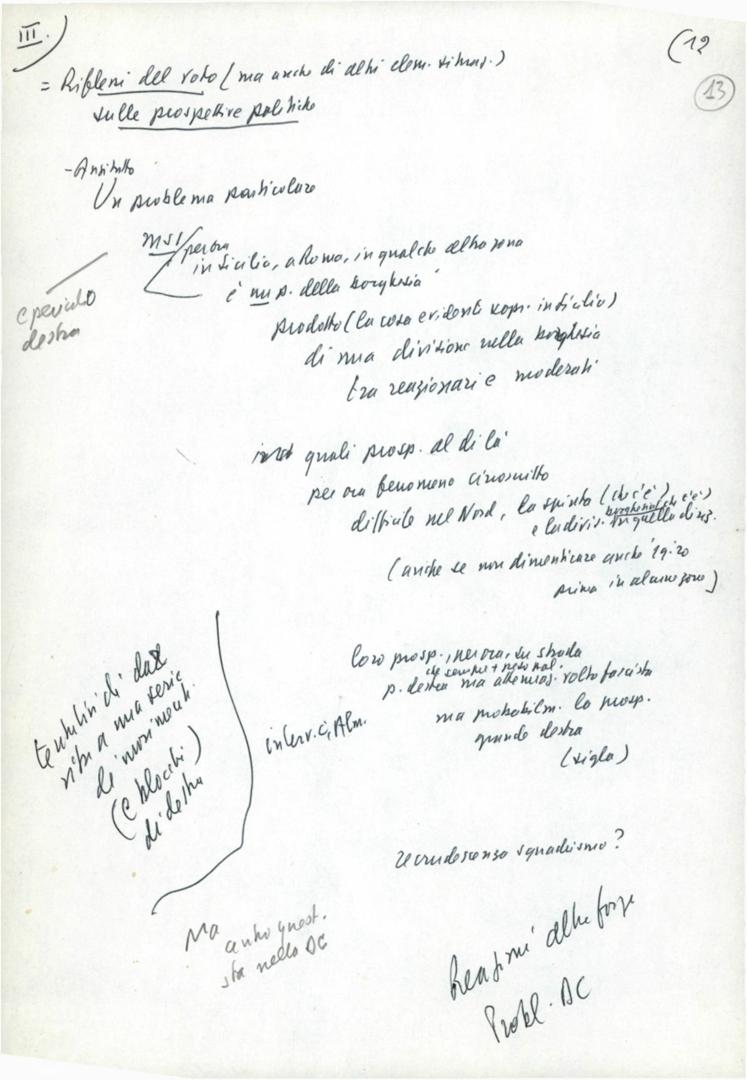 III.)
(12
13
= Riflessi del voto (ma anche di altri elem. situaz.)
sulle prospettive politiche
- Anzitutto
Un problema particolare
MSI per ora
in Sicilia, a Roma, in qualche altra zona
è un p. della borghesia
e pericolo
destra
prodotto (la cosa evidente sopr. in Sicilia)
di una divisione nella borghesia
tra reazionari e moderati
quali prosp. al di là
per ora fenomeno circoscritto
difficile nel Nord, la spinta (che c'è)
e la divis. borghesia che c'è)
in quella direz.
(anche se non dimenticare anche '19-20
prima in alcune zone)
loro prosp. su strada
che sempre + naz.
p. destra ma attenuaz. volto fascista
ma probabilm. la prosp.
grande destra
(sigla)
interv. Alm.
tentativi di dar
vita a una serie
di movimenti
(e blocchi)
di destra
recrudescenza squadrismo?
Ma
anche quest.
sta nella DC
Reazioni altre forze
Probl. DC